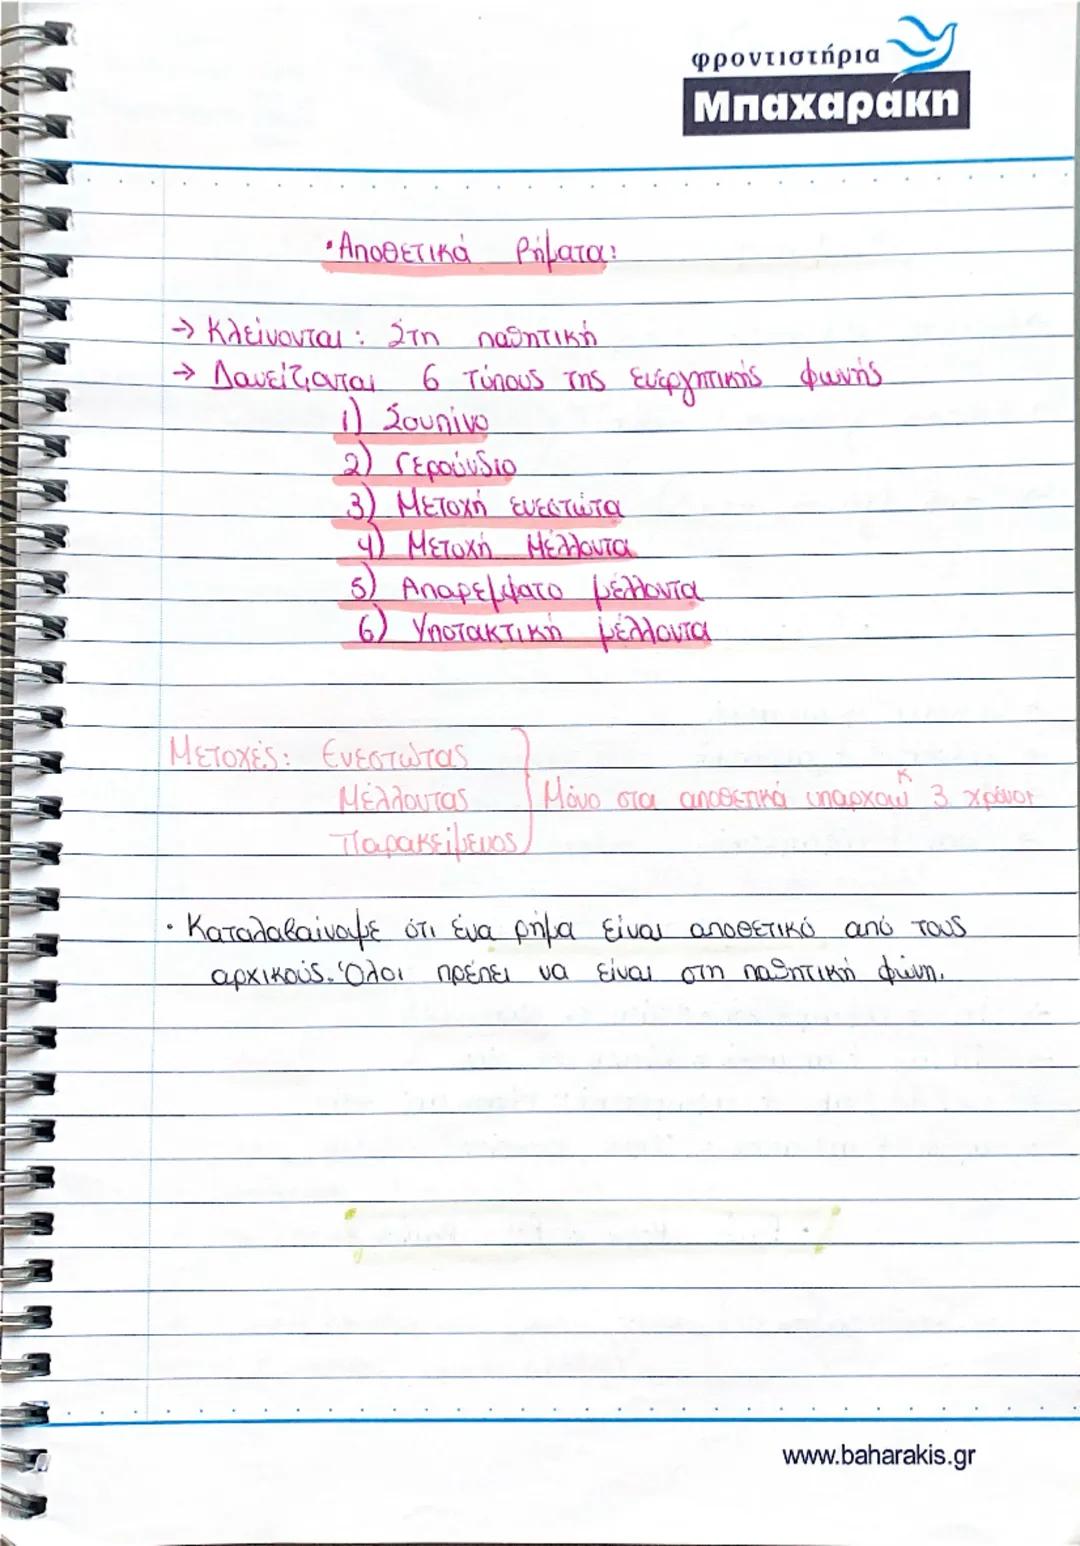 φροντιστήρια
Μπαχαράκη
• Αποθετικά Ρήματα:
→ Κλείνονται: Στη παθητική
→ Δανείζονται 6 τύπους της ενεργητικής φωνής
1) Σουπίνο
2) Γερούνδιο
3) Μετοχή ενεστώτα
4) Μετοχή Μέλλοντα
5) Απαρέμφατο μέλλοντα
6) Υποτακτική μέλλοντα
Μετοχές: Ενεστώτας
Μέλλοντας
Παρακείμενος
Μόνο στα αποθετικά υπαρχουν κ 3 χρόνοι
• Καταλαβαίνουμε ότι ένα ρήμα είναι αποθετικό από τους
αρχικούς. Όλοι πρέπει να είναι στη παθητική φώνη.
www.baharakis.gr